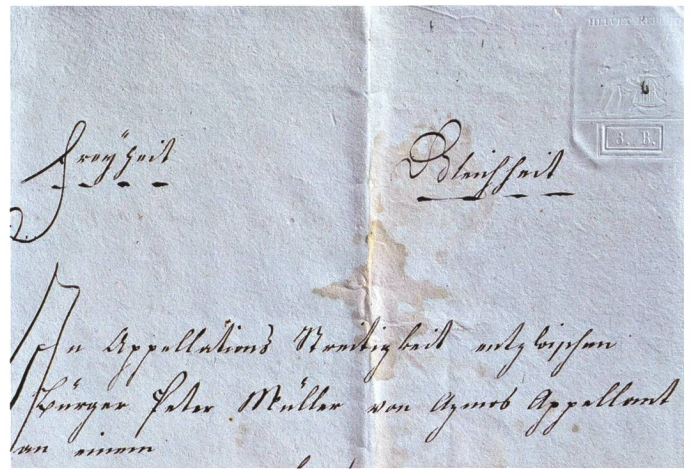 HELVET. REPUBL
3. B.
Freyheit Gleichheit
In Appellations Streitigkeit entzwischen
Bürger Peter Müller von Azmos Appellant
an einem